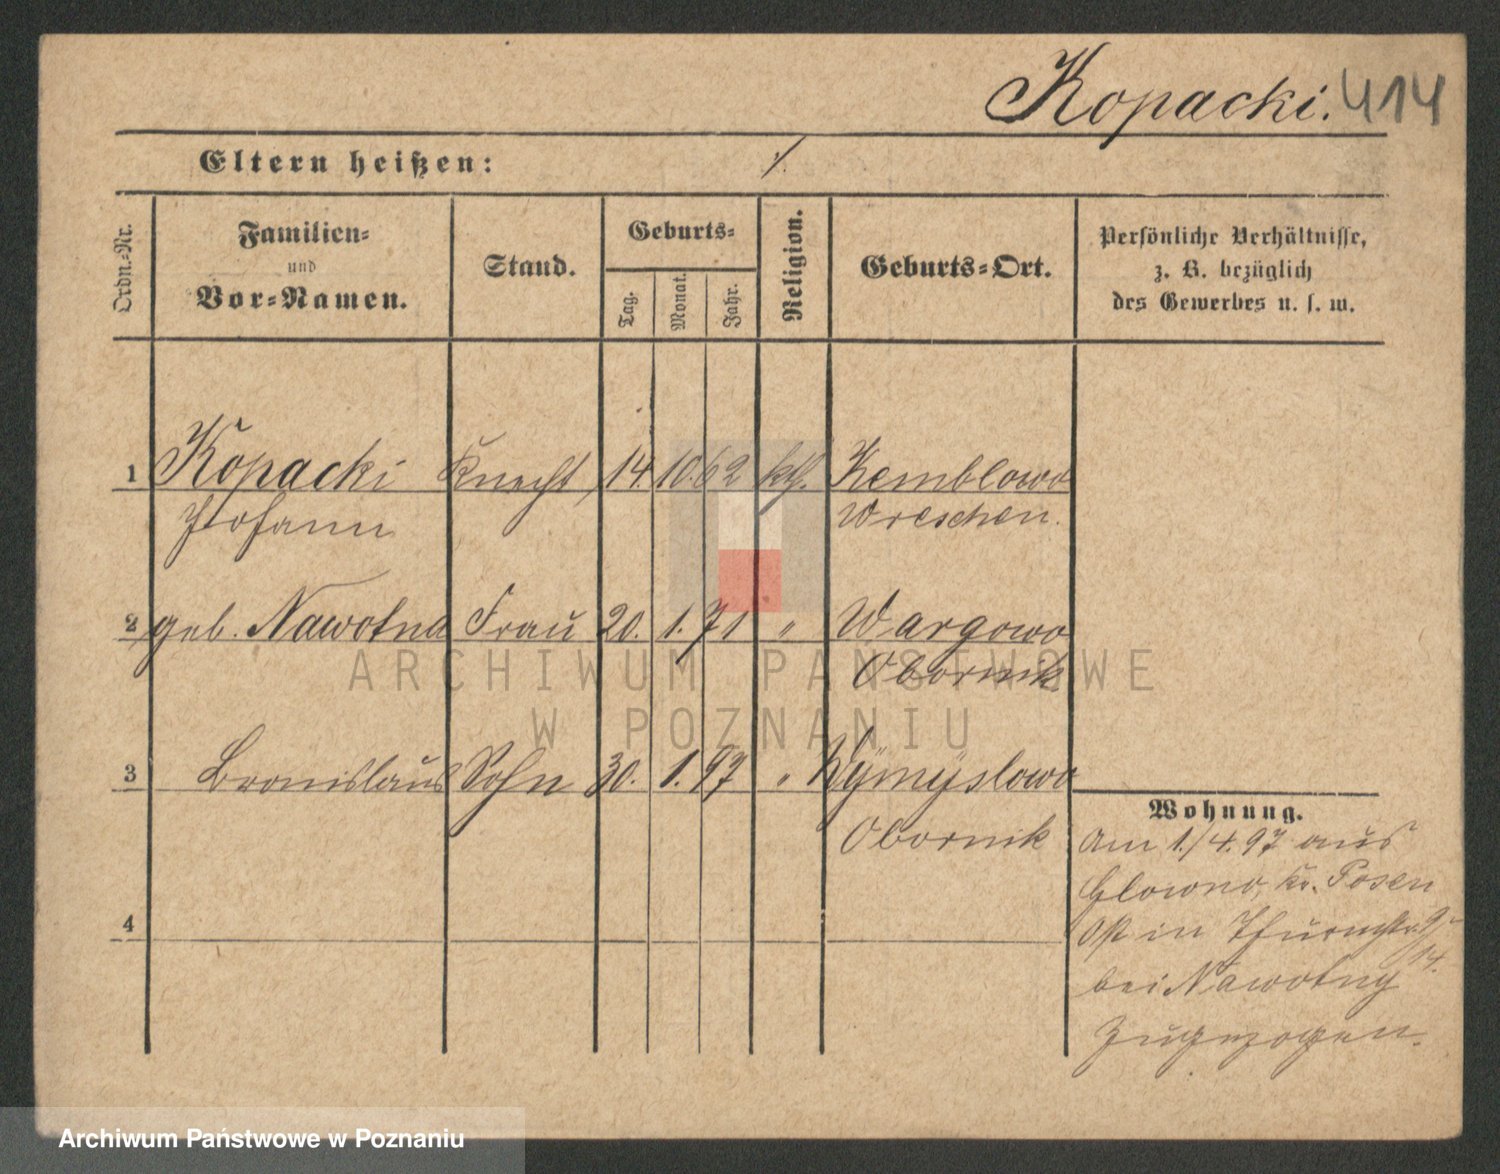 Kopacki. 414
Eltern heißen: ./.
Ordn.-Nr.
Familien-
und
Vor-Namen.
Stand.
Geburts-
Tag.
Monat.
Jahr.
Religion.
Geburts-Ort.
Persönliche Verhältnisse,
z. B. bezüglich
des Gewerbes u. s. w.
1 Kopacki Knecht 14. 10. 62 kth. Kemblowo
Johann Wreschen.
2 geb. Nawotna Frau 20. 1. 71 " Wargowo
Obornik
3 Bronislaus Sohn 30. 1. 97 " Wymyslowo
Obornik
Wohnung.
Am 1./4.97 aus
Glowno, Kr. Posen
Ost in Thurmstr.
14.
bei Nawotny
zugezogen.
4
ARCHIWUM PAŃSTWOWE
W POZNANIU
Archiwum Państwowe w Poznaniu